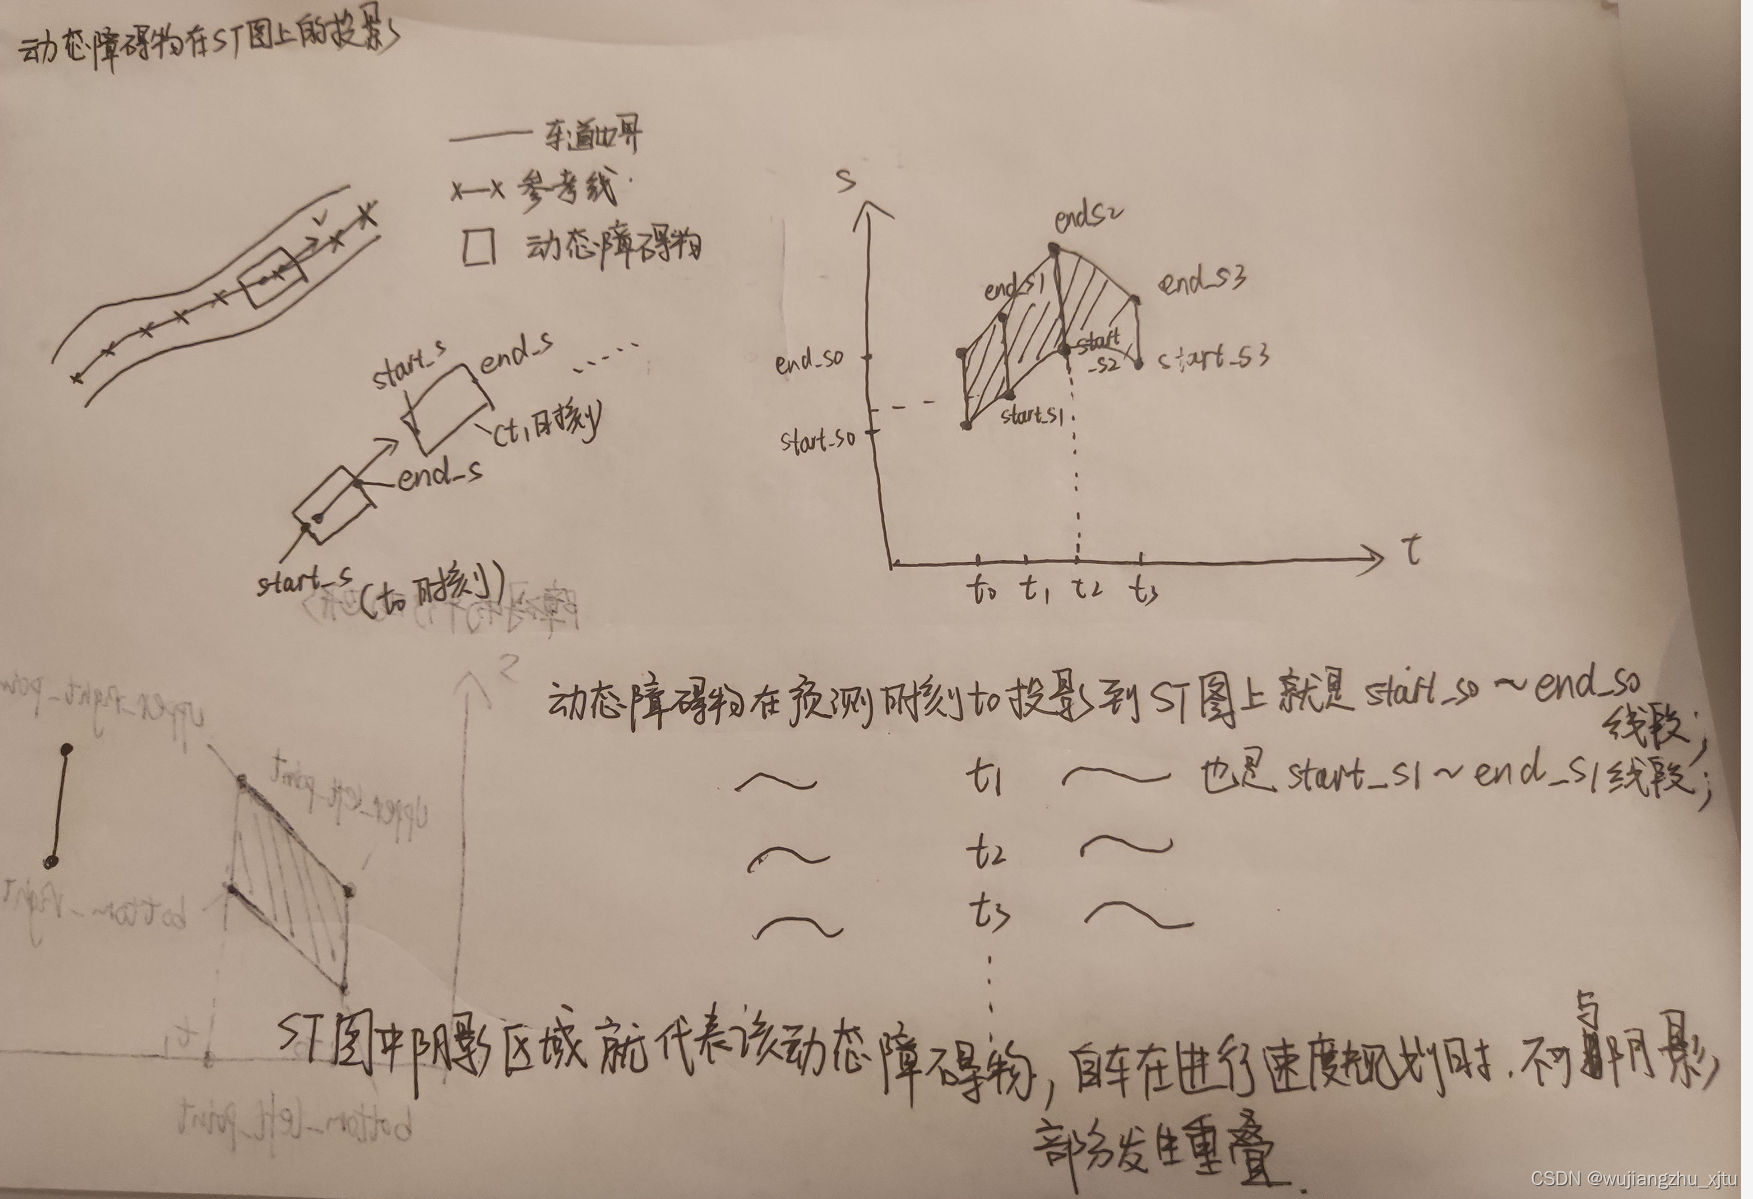 动态障碍物在ST图上的投影
车道边界
x—x 参考线
动态障碍物
v
start_s
end_s
(t1时刻)
end_s
start_s (t0时刻)
s
end_s2
end_s1
end_s3
end_s0
start_s2
start_s3
start_s1
start_s0
t
t0 t1 t2 t3
动态障碍物在预测时刻t0投影到ST图上就是start_s0~end_s0
线段;
~ t1 ~ 也是start_s1~end_s1线段;
~ t2 ~
~ t3 ~
ST图中阴影区域就代表该动态障碍物,自车在进行速度规划时.不可与阴影
部分发生重叠.
s
upper_right_poin
upper_left_point
bottom_right
t1
bottom_left_point
CSDN @wujiangzhu_xjtu